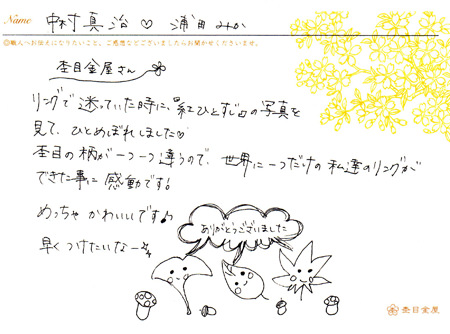 Name 中村真治 ♡ 浦田みか
◎職人へお伝えになりたいこと、ご感想などございましたらお聞かせくださいませ。
杢目金屋さん
リングで迷っていた時に、"紅ひとすじ"の写真を
見て、ひとめぼれしました♡
杢目の柄が一つ一つ違うので、世界に一つだけの私達のリングが
できた事に感動です!
めっちゃかわいいです♪
早くつけたいなー
ありがとうございました
杢目金屋